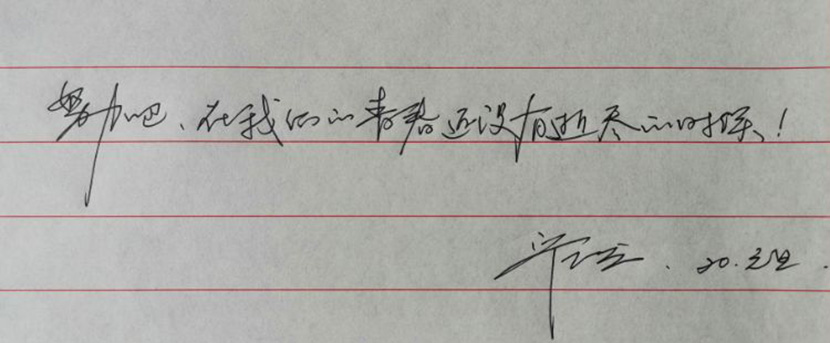 努力吧、在我们的青春还没有逝尽的时候！
20.元旦.